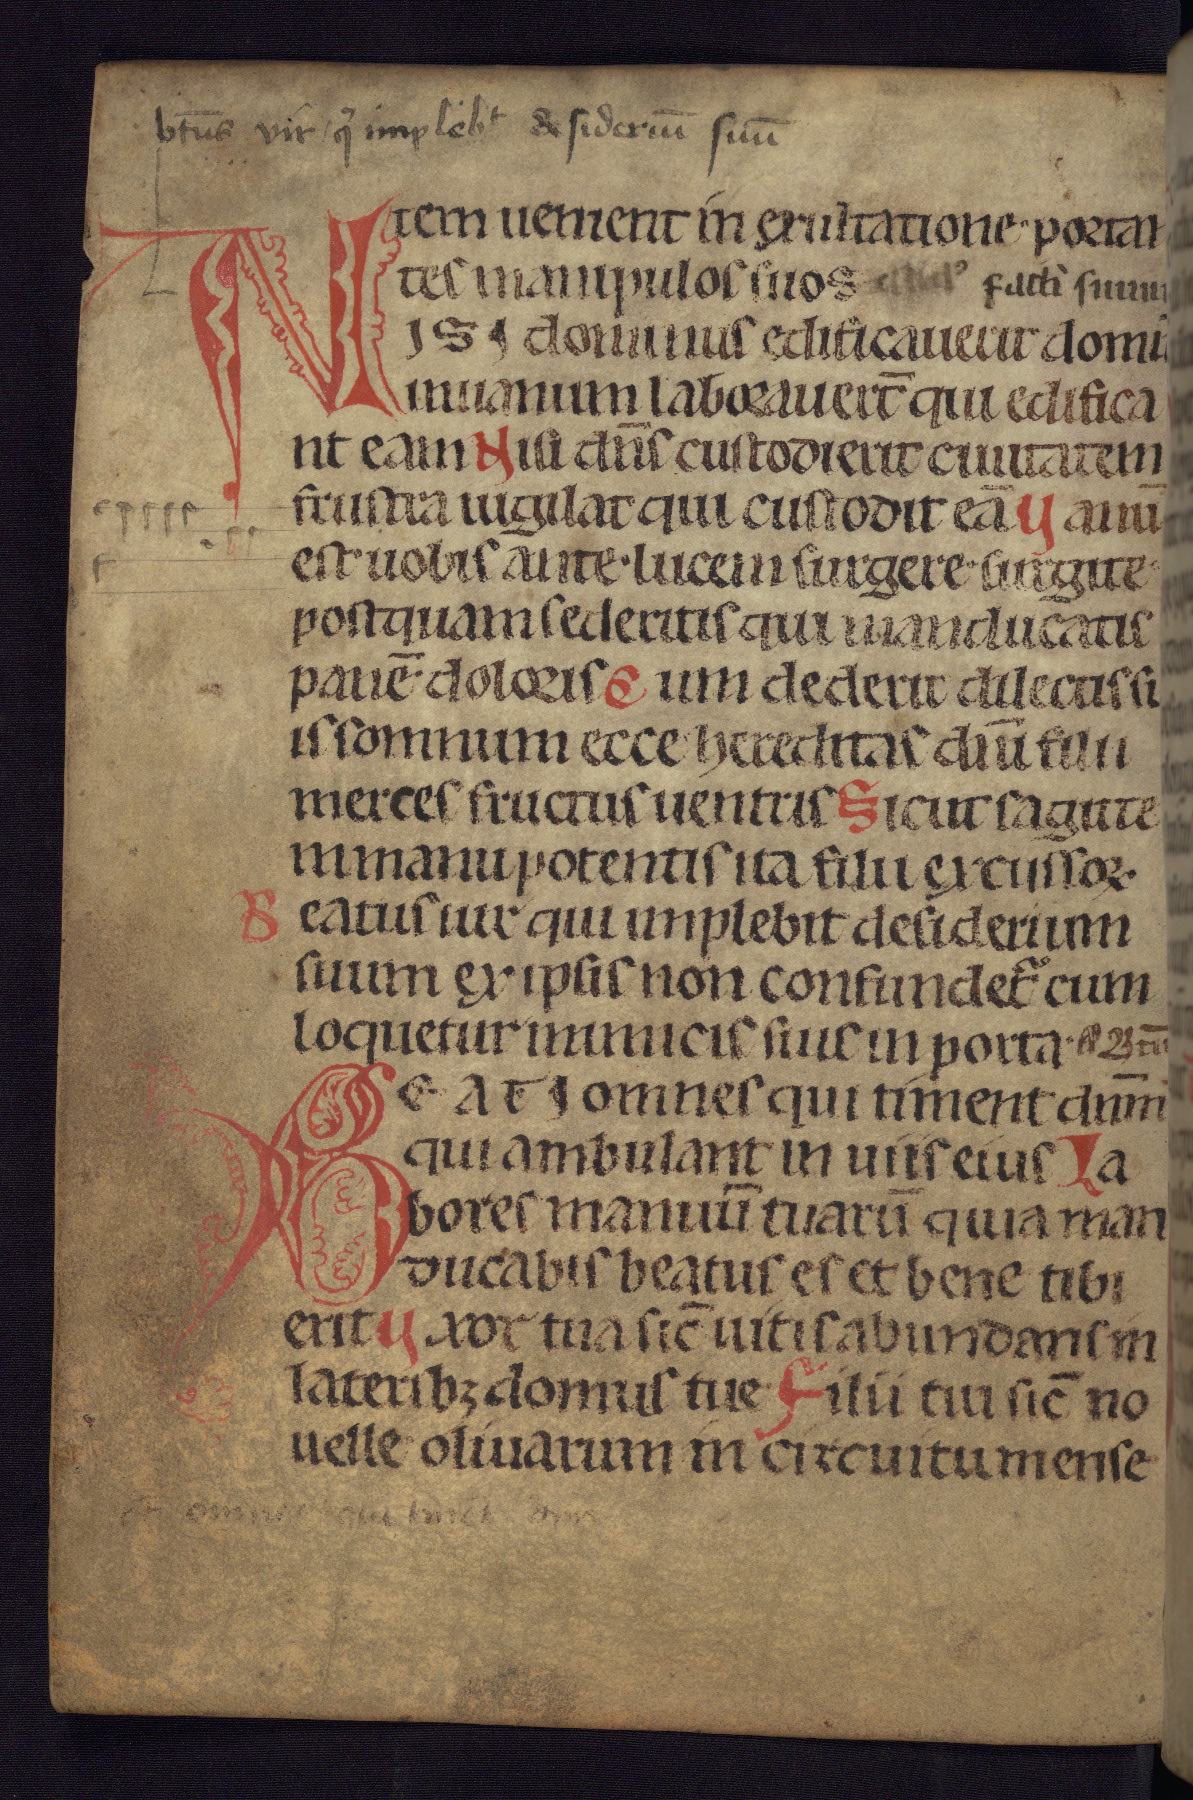 btus vir q implebt desideriū suū
tem uenient in exultatione portan
tes manipulos suos facti sumus
NISI dominus edificauerit domū
inuanum laborauert̄ qui edifica
nt eam Nisi dn̄s custodierit ciuitatem
frustra uigilat qui custodit eā Uanū
est uobis ante lucem surgere surgite
postquam sederitis qui manducatis
panē doloris Cum dederit dilectis su
is somnum ecce hereditas dn̄i filii
merces fructus uentris Sicut sagitte
in manu potentis ita filii excussor
Beatus uir qui implebit desiderium
suum ex ipsis non confundet̄ cum
loquetur inimicis suis in porta
BEATI omnes qui timent dn̄m
qui ambulant in uiis eius La
bores manuū tuarū quia man
ducabis beatus es et bene tibi
erit Uxor tua sic̄ uitis abundans in
lateribꝫ domus tue Filii tui sic̄ no
uelle oliuarum in circuitu mense
omnes qui